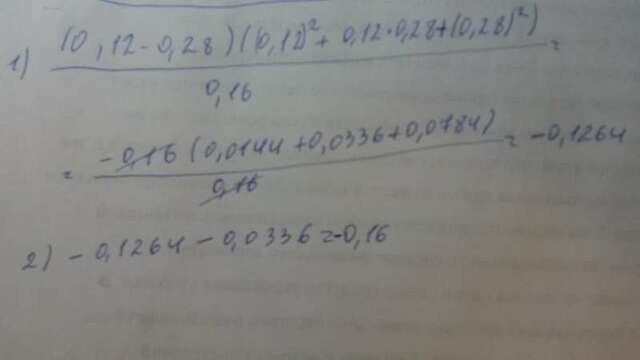 1) (0,12-0,28)((0,12)²+0,12·0,28+(0,28)²) =
0,16
= -0,16 (0,0144+0,0336+0,0784) = -0,1264
0,16
2) -0,1264-0,0336=-0,16